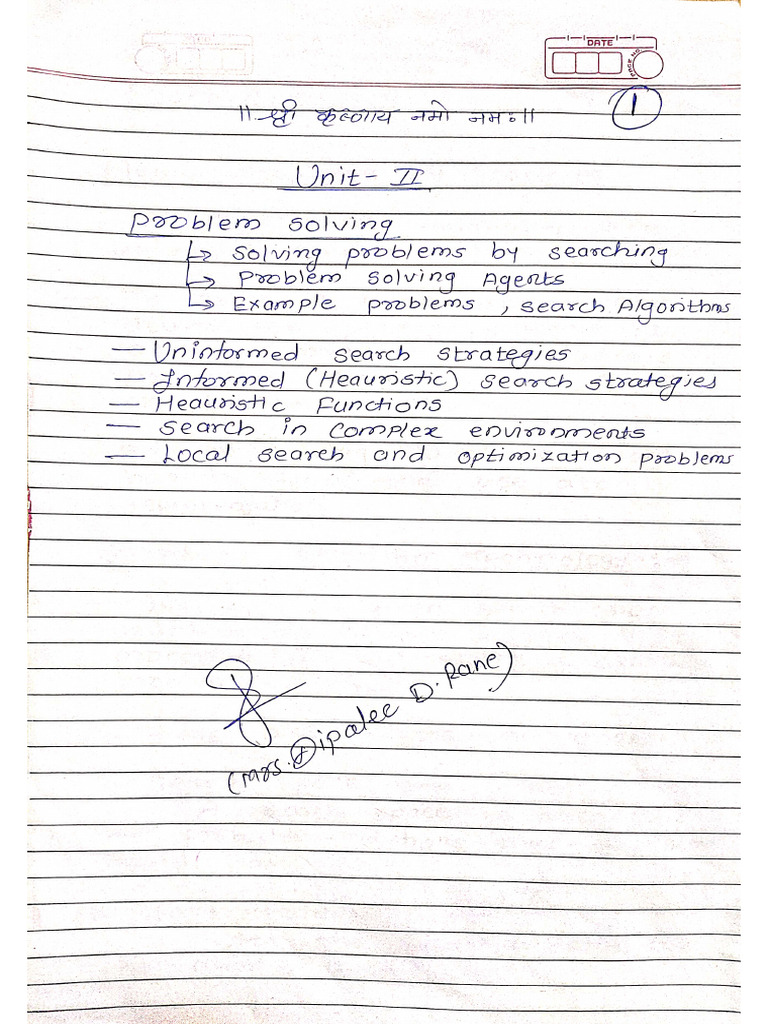 DATE
PAGE NO.
॥ श्री कृष्णाय नमो नमः ॥
1
Unit - II
Problem Solving
↳ Solving problems by searching
↳ Problem Solving Agents
↳ Example problems, Search Algorithms
— Uninformed search strategies
— Informed (Heauristic) search strategies
— Heauristic Functions
— Search in complex environments
— Local search and optimization problems
(Mrs. Dipalee D. Rane)